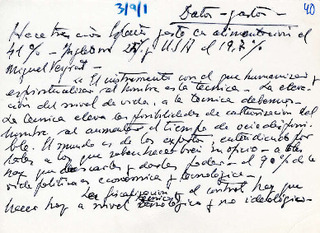 3/9/1
40
Datos - gasto -
Hace tres años España gastó en alimentación el
41% - Inglaterra 27% y USA el 19,7%
Miguel
"El instrumento con el que humanizar y
espiritualizar al hombre es la técnica - La eleva-
ción del nivel de vida, a la técnica debemos -
La técnica eleva las posibilidades de culturización del
hombre al aumentar el tiempo de ocio disponi-
ble. El mundo es de los expertos, entendidos por
tales a los que saben hacer bien su oficio - a
hay que buscarles y darles poder - el 90% de la
vida política es económica y tecnológica -
La fiscalización y el control hay que
hacer hoy a nivel tecnológico y no ideológico -